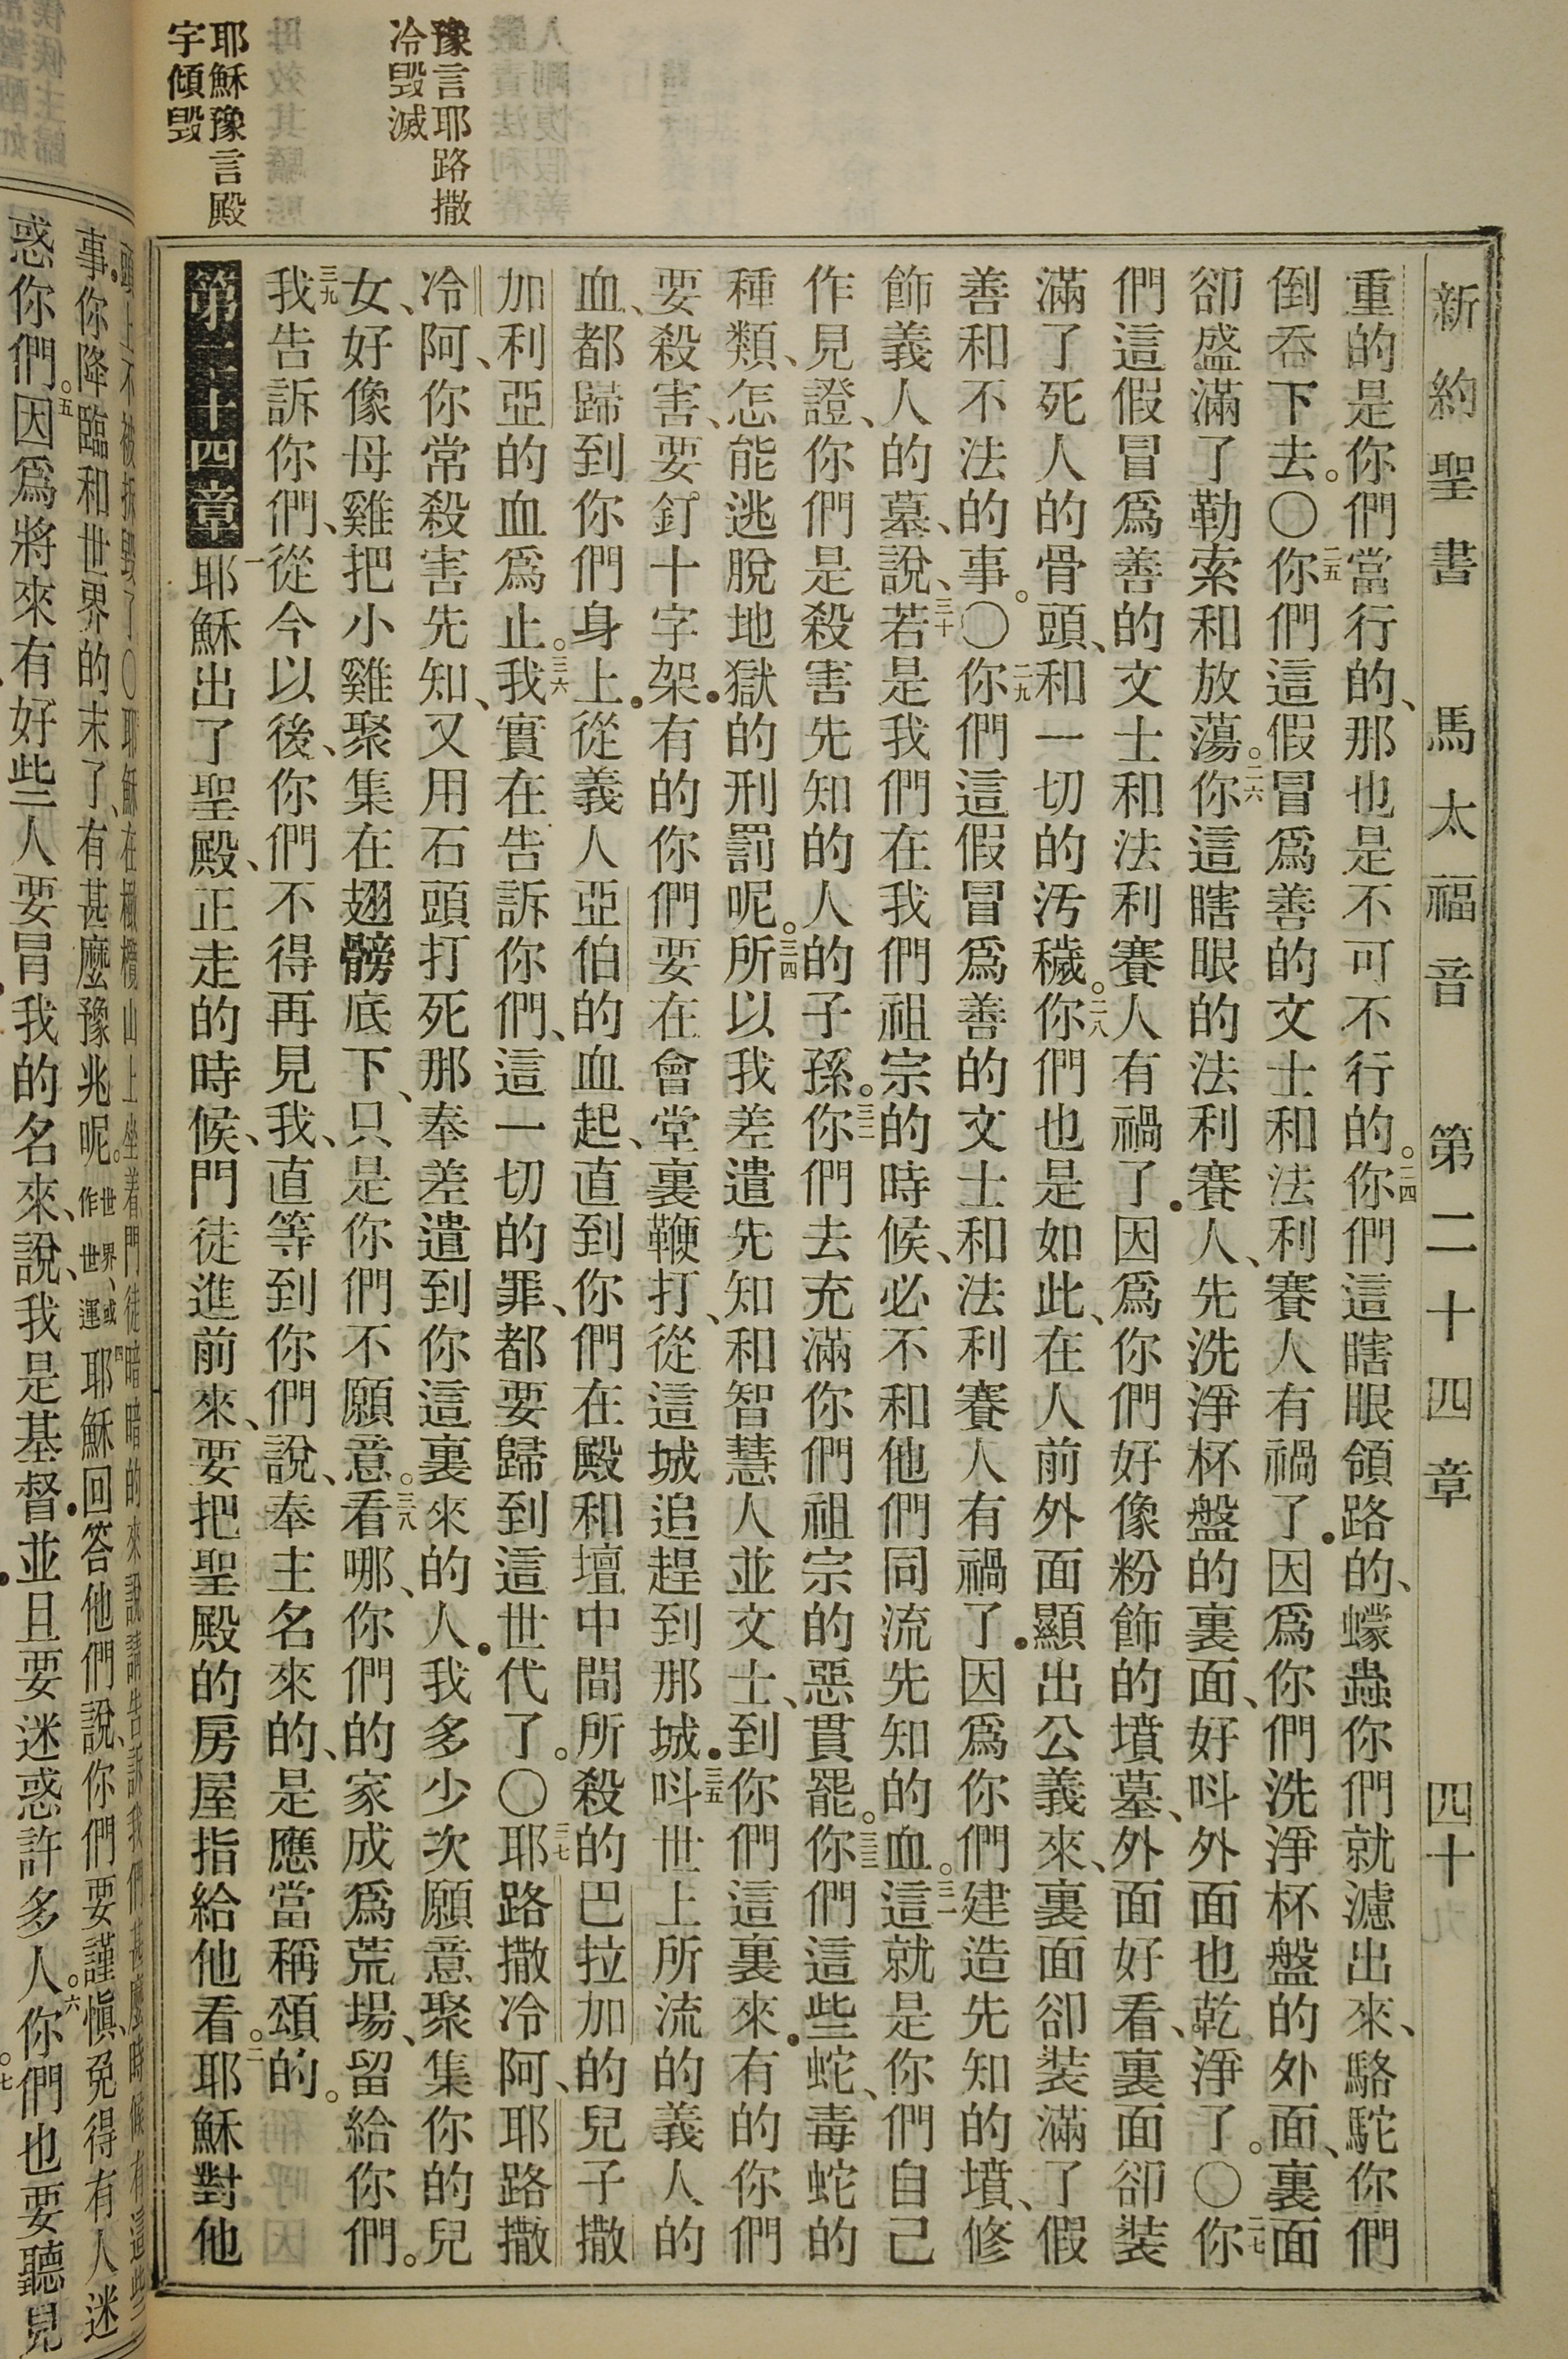 新約聖書 馬太福音 第二十四章 四十九
重的是你們當行的、那也是不可不行的。二四你們這瞎眼領路的、蠓蟲你們就濾出來、駱駝你們
倒吞下去。〇二五你們這假冒爲善的文士和法利賽人有禍了．因爲你們洗淨杯盤的外面、裏面
卻盛滿了勒索和放蕩。二六你這瞎眼的法利賽人、先洗淨杯盤的裏面、好呌外面也乾淨了。〇二七你
們這假冒爲善的文士和法利賽人有禍了．因爲你們好像粉飾的墳墓、外面好看、裏面卻裝
滿了死人的骨頭、和一切的汚穢。二八你們也是如此、在人前外面顯出公義來、裏面卻裝滿了假
善和不法的事。〇二九你們這假冒爲善的文士和法利賽人有禍了．因爲你們建造先知的墳、修
飾義人的墓、說、三十若是我們在我們祖宗的時候、必不和他們同流先知的血。三一這就是你們自己
作見證、你們是殺害先知的人的子孫。三二你們去充滿你們祖宗的惡貫罷。三三你們這些蛇、毒蛇的
種類、怎能逃脫地獄的刑罰呢。三四所以我差遣先知和智慧人並文士、到你們這裏來．有的你們
要殺害、要釘十字架．有的你們要在會堂裏鞭打、從這城追趕到那城．三五呌世上所流的義人的
血、都歸到你們身上．從義人亞伯的血起、直到你們在殿和壇中間所殺的巴拉加的兒子撒
加利亞的血爲止。三六我實在告訴你們、這一切的罪、都要歸到這世代了。〇三七耶路撒冷阿、耶路撒
冷阿、你常殺害先知、又用石頭打死那奉差遣到你這裏來的人．我多少次願意聚集你的兒
女、好像母雞把小雞聚集在翅髈底下、只是你們不願意。三八看哪、你們的家成爲荒場、留給你們。
三九我告訴你們、從今以後、你們不得再見我、直等到你們說、奉主名來的、是應當稱頌的。
第二十四章 一耶穌出了聖殿、正走的時候、門徒進前來、要把聖殿的房屋指給他看。二耶穌對他
豫言耶路撒
冷毀滅
耶穌豫言殿
宇傾毀
事．你降臨和世界的末了、有甚麼豫兆呢。世界、或作世運 四耶穌回答他們說、你們要謹愼、免得有人迷
惑你們。五因爲將來有好些人要冒我的名來、說、我是基督．並且要迷惑許多人。六你們也要聽見